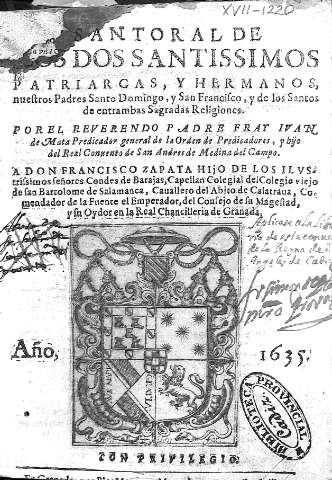 XVII-1220
SANTORAL DE
LOS DOS SANTISSIMOS
PATRIARCAS, Y HERMANOS,
nuestros Padres Santo Domingo, y San Francisco, y de los Santos
de entrambas Sagradas Religiones.
POR EL REVERENDO PADRE FRAY IVAN
de Mata Predicador general de la Orden de Predicadores, y hijo
del Real Conuento de San Andres de Medina del Campo.
A DON FRANCISCO ZAPATA HIJO DE LOS ILVS-
trissimos señores Condes de Barajas, Capellan Colegial del Colegio viejo
de san Bartolome de Salamanca, Cauallero del Abito de Calatraua, Co-
mendador de la Fuente el Emperador, del Consejo de su Magestad,
y su Oydor en la Real Chancilleria de Granada.
Año, 1635.
BIBLIOTECA PROVINCIAL
Cadiz
CON PRIVILEGIO